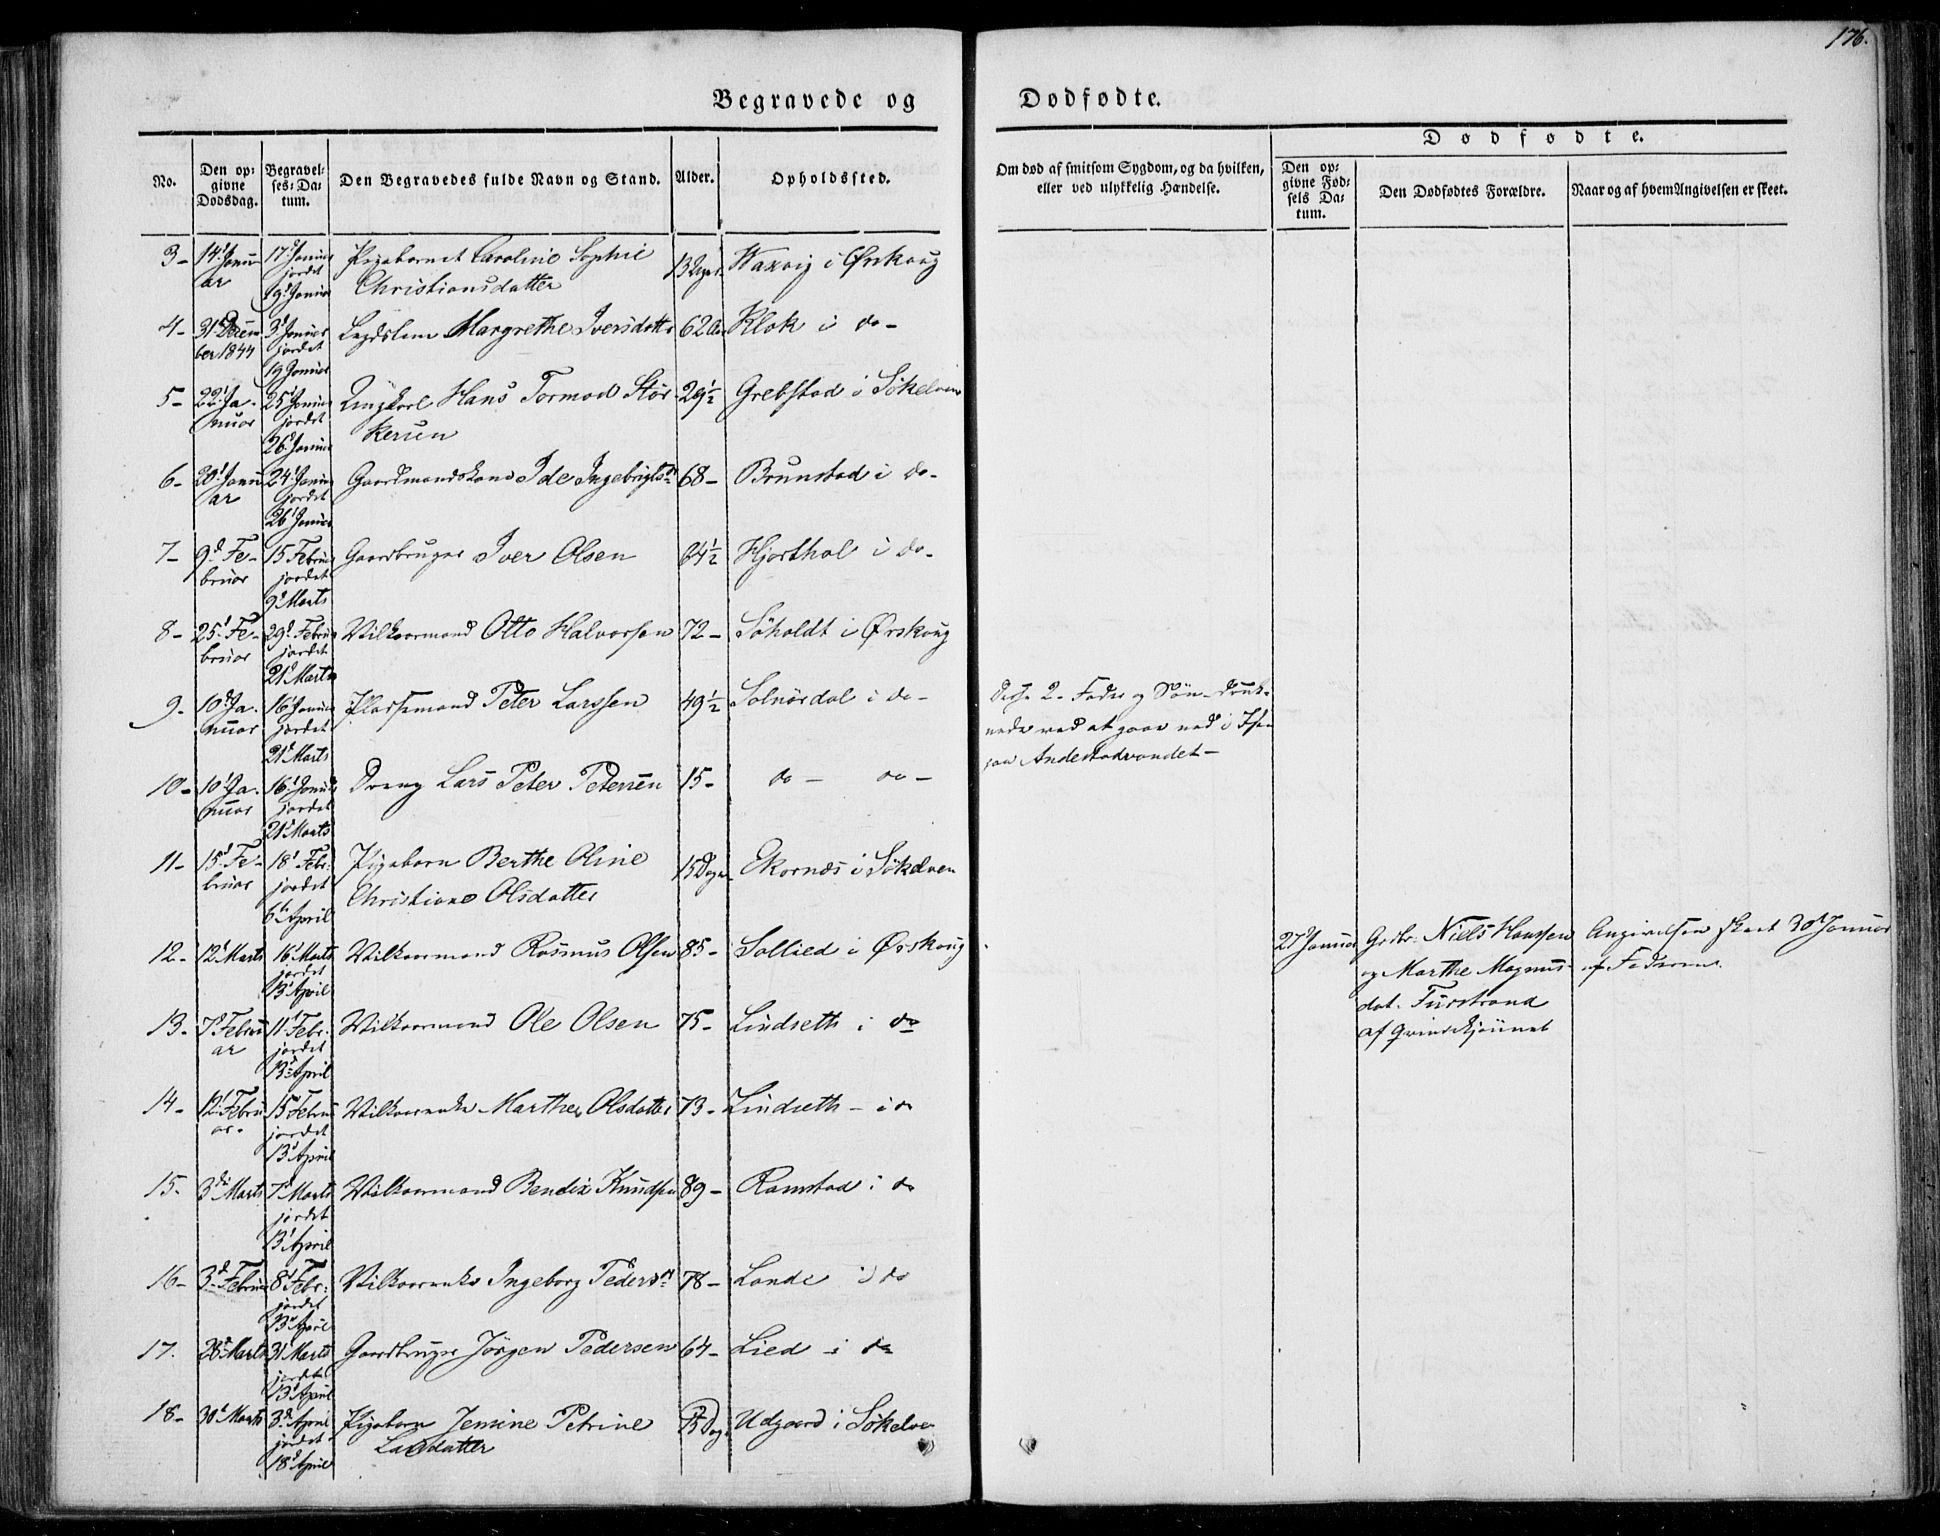 176.
Begravede og Dødfødte.
Dødfødte.
No.
Den opgivne Dødsdag.
Begravelses-Datum.
Den Begravedes fulde Navn og Stand.
Alder.
Opholdssted.
Om død af smitsom Sygdom, og da hvilken, eller ved ulykkelig Hændelse.
Den opgivne Fødsels Datum.
Den Dødfødtes Forældre.
Naar og af hvem Angivelsen er skeet.
3- 14d Januar 17d Januar jordet 19d Januar Pigebarnet Caroline Sophie Christiansdatter 13 Waxvig i Ørskoug
4- 31 December 1844 3d Januar jordet 19 Januar Lægdslem Margrethe Iversdatter 62 Aar Klok i do-
5- 22d Januar 25d Januar jordet 26d Januar Ungkarl Hans Tormod Størkersen 29½ Grebstad i Søkelven
6- 20d Januar 24d Januar jordet 26d Januar Gaardmandskone Ingebrigtsdr 68- Brunstad i do-
7- 9d Februar 15 Februar jordet 9d Marts Gaardbruger Iver Olsen 64½ Hjorthol i do-
8- 25d Februar 29d Februar jordet 21d Marts Vilkaarmand Otto Halvorsen 72- Søholdt i Ørskoug
9- 10d Januar 16d Januar jordet 21d Marts Pladsemand Peter Larssen 49½ Solnørdal i do-
Disse 2- Fader og Søn- druknede ved at gaae ned i Isen paa Andestadvandet-
10- 10d Januar 16d Januar jordet 21d Marts Dreng Lars Peter Petersen 15- do- do-
11- 15d Februar 18d Febr. jordet 6te April Pigebarn Berthe Oline Christiane Olsdatter 15 Dage Ekornæs i Søkelven
12- 12d Marts 16d Marts jordet 13d April Vilkaarmand Rasmus Olsen 85- Sollied i Ørskoug
27 Januar Grdbr. Niels Hanssen og Marthe Magnusdat. Furstrand af Qvindekjønnet
Angivelsen skeet 30d Januar af Faderen.
13- 7d Februar 11d Febr. jordet 13d April Vilkaarmand Ole Olsen 75- Lindseth i do
14- 12d Februar 15 Februar jordet 13d April Vilkaarenke Marthe Olsdatter 73- Lindseth- i do
15. 3d Marts 7d Marts jordet 13d April Vilkaarmand Bendix Knudsen 89- Ramstad i do
16- 3d Februar 8d Febr. jordet 13d April Vilkaarenke Ingeborg Pedersdr 78- Lande i do
17. 28d Marts 31 Marts jordet 13d April Gaardbruger Jørgen Pedersen 64- Lied i do
18- 30d Marts 3d April jordet 18d April Pigebarn Jemine Petrine Larsdatter Dage Udgaard i Søkelven